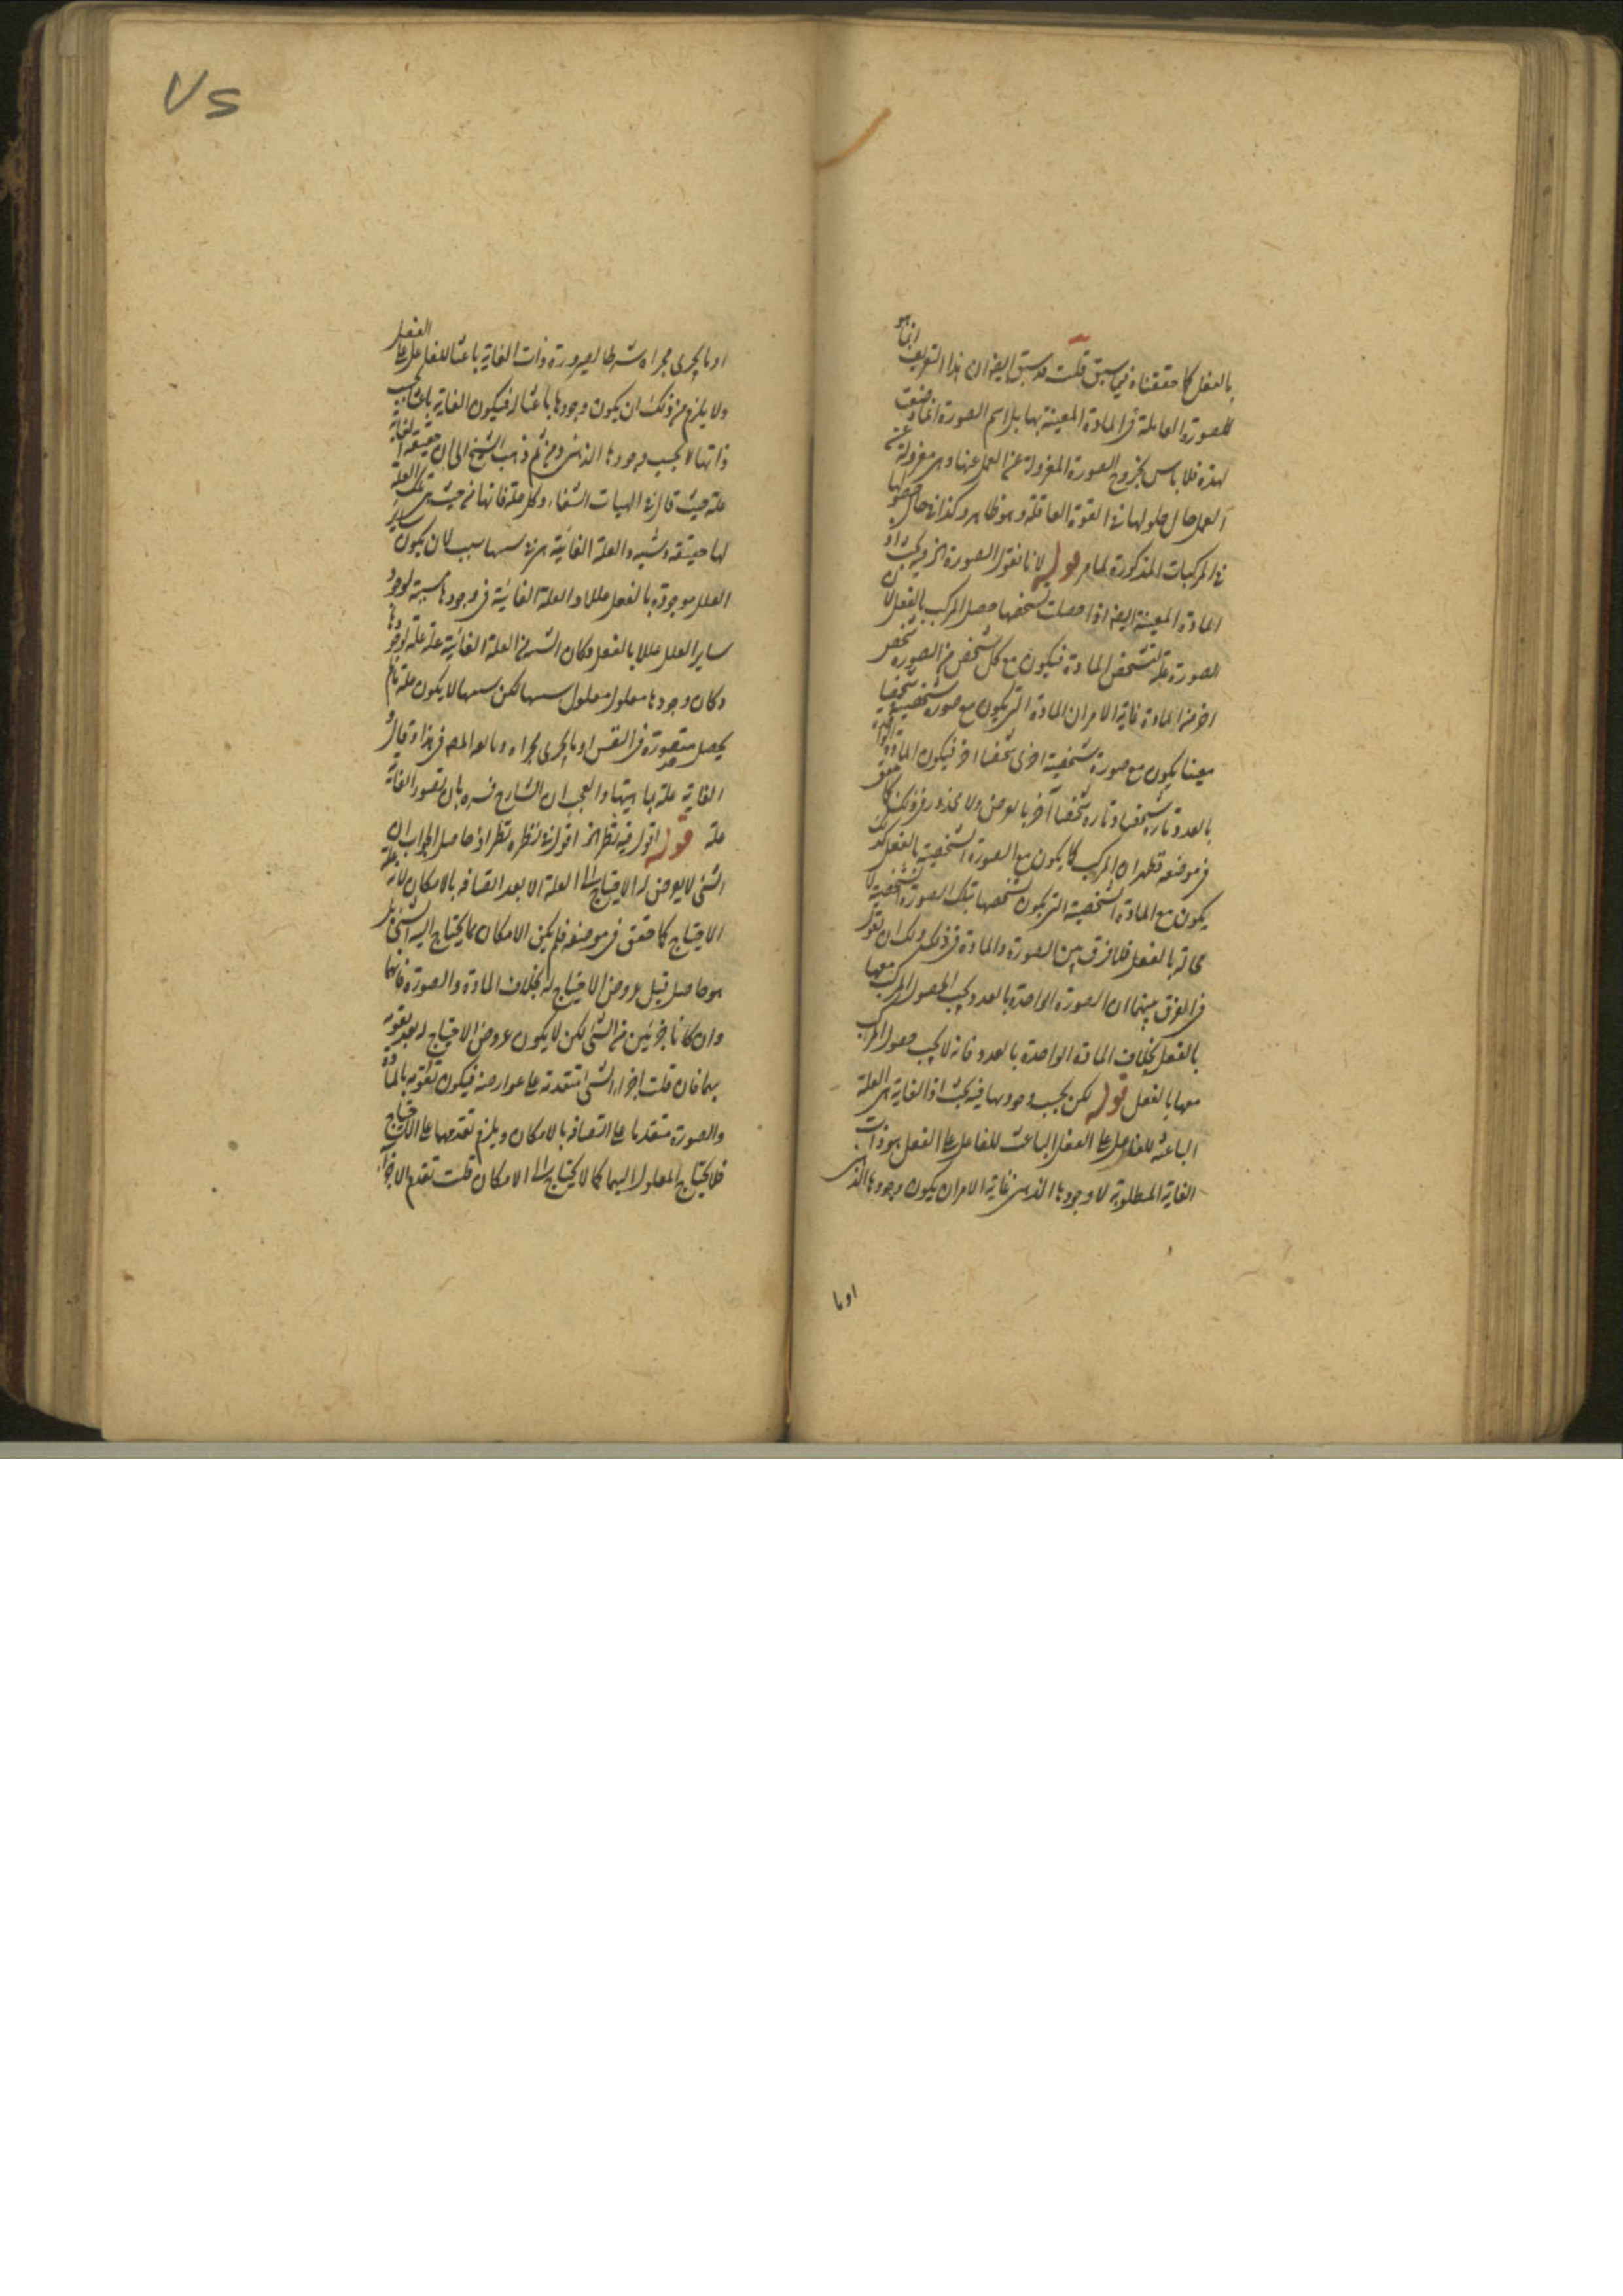 بالفعل كما حققناه فيما سبق قلت قد سبق ايضا ان هذا التعريف انما هو
للصورة العاملة فى المادة المعينة بها بل اسم الصورة انما وضعت
لهذه فلا باس بخروج الصورة المعزولة عن العمل عنها وهى معزولة عن
العمل حال حلولها فى القوة العاقلة وهو ظاهر وكذا فى حال حصولها
فى المركبات المذكورة لما مر قوله لانا نقول الصورة الخ فيه بحث اذ
المادة المعينة ايضا اذا حصلت بشخصها حصل المركب بالفعل لان
الصورة علة لتشخص المادة فيكون مع كل شخص من الصورة شخص
اخر من المادة غاية الامر ان المادة التى يكون مع صورة شخصية شخصا
معينا يكون مع صورة شخصية اخرى شخصا اخر فيكون المادة الواحدة
بالعدد تارة شخصا وتارة شخصا آخر بالعرض ولا محذور فى ذلك كما حقق
فى موضعه فظهر ان المركب كما يكون مع الصورة الشخصية بالفعل كذلك
يكون مع المادة الشخصية التى يكون تشخصها بتلك الصورة الشخصية لا
محالة بالفعل فلا فرق بين الصورة والمادة فى ذلك ولك ان تقول
فى الفرق بينهما ان الصورة الواحدة بالعدد يجب الحصول المركب معها
بالفعل بخلاف المادة الواحدة بالعدد فانه لا يجب حصول المركب
معها بالفعل قوله لكن بحسب وجودها فيه بحث اذ الغاية هى العلة
الباعثة للفاعل على الفعل الباعث للفاعل على الفعل هو ذات
الغاية المطلوبة لا وجودها الذهنى غاية الامر ان يكون وجودها الذهنى
او ما
او ما يجرى مجراه شرطا لصيرورة ذات الغاية باعثا للفاعل على الفعل
ولا يلزم من ذلك ان يكون وجودها باعثا له فيكون الغاية باعثا بحسب
ذاتها لا بحسب وجودها الذهنى ومن ثم ذهب الشيخ الى ان حقيقة الغاية
علة حيث قال فى الهيات الشفاء وكل علة فانها من حيث هى تلك العلة
لها حقيقة وشيئية والعلة الغائية هى فى شيئيتها سبب لان يكون ساير
العلل موجودة بالفعل عللا والعلة الغائية فى وجودها مسببة لوجود
ساير العلل عللا بالفعل وكان الشيئية من العلة الغائية علة علة لوجودها
وكان وجودها معلول معلول شيئيتها لكن شيئيتها لا يكون علة ما لم
يحصل متصورة فى النفس او ما يجرى مجراه وتابعه المص فى هذا وقال و
الغاية علة بماهيتها والعجب ان الشارح فسره بان تصور الغاية
علة قوله اقول فيه نظر الخ اقول فى نظره نظر اذ حاصل الجواب ان
الشئ لا يعرض له الاحتياج الى العلة الا بعد اتصافه بالامكان لانه علة
الاحتياج كما حقق فى موضعه فلم يكن الامكان مما يحتاج اليه الشئ بل
هو حاصل قبل عروض الاحتياج له بخلاف المادة والصورة فانهما
وان كانا جزئين من الشئ لكن لا يكون عروض الاحتياج له بعد تقومه
بهما فان قلت اجزاء الشئ متقدمة على عوارضه فيكون تقومه بالمادة
والصورة متقدما على اتصافه بالامكان ويلزم تقدمهما على الاحتياج
فلا يحتاج المعلول اليهما كما لا يحتاج الى الامكان قلت تقدم الاجزاء